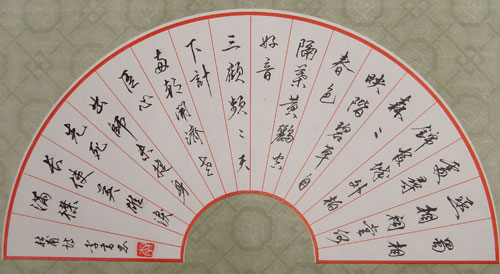 蜀相
丞相祠堂何
尋
錦官城外柏
森〻
映階碧草自
春色
隔葉黃鸝空
好音
三顧頻〻天
下計
兩朝開濟老
臣心
出師未捷身
先死
長使英雄淚
滿襟
杜甫詩